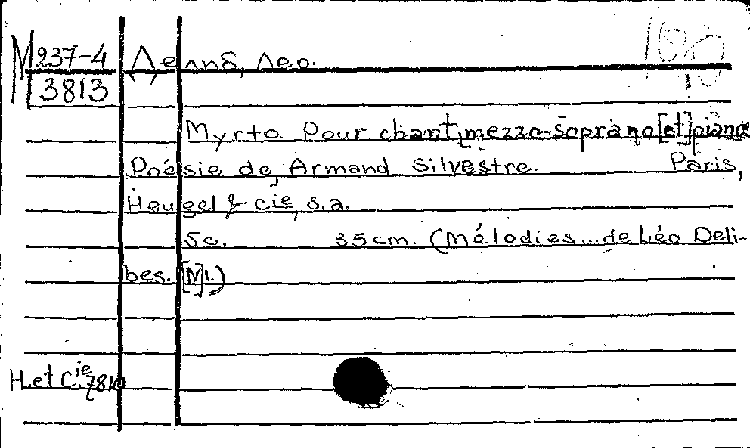 М 237-4 Делиб, Лео.
3813
Myrto. Pour chant, mezzo-soprano [et] piano
Poésie de Armand Silvestre. Paris,
Heugel & cie, s.a.
5c. 35cm. (Mélodies...de Léo Deli-
bes. [N1.)
H. et Cie